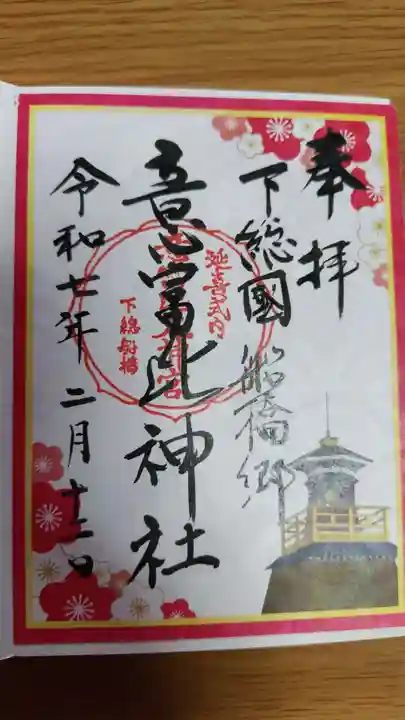 奉拝
下総國 船橋郷
意富比神社
令和七年 二月十二日
延喜式内
下総船橋